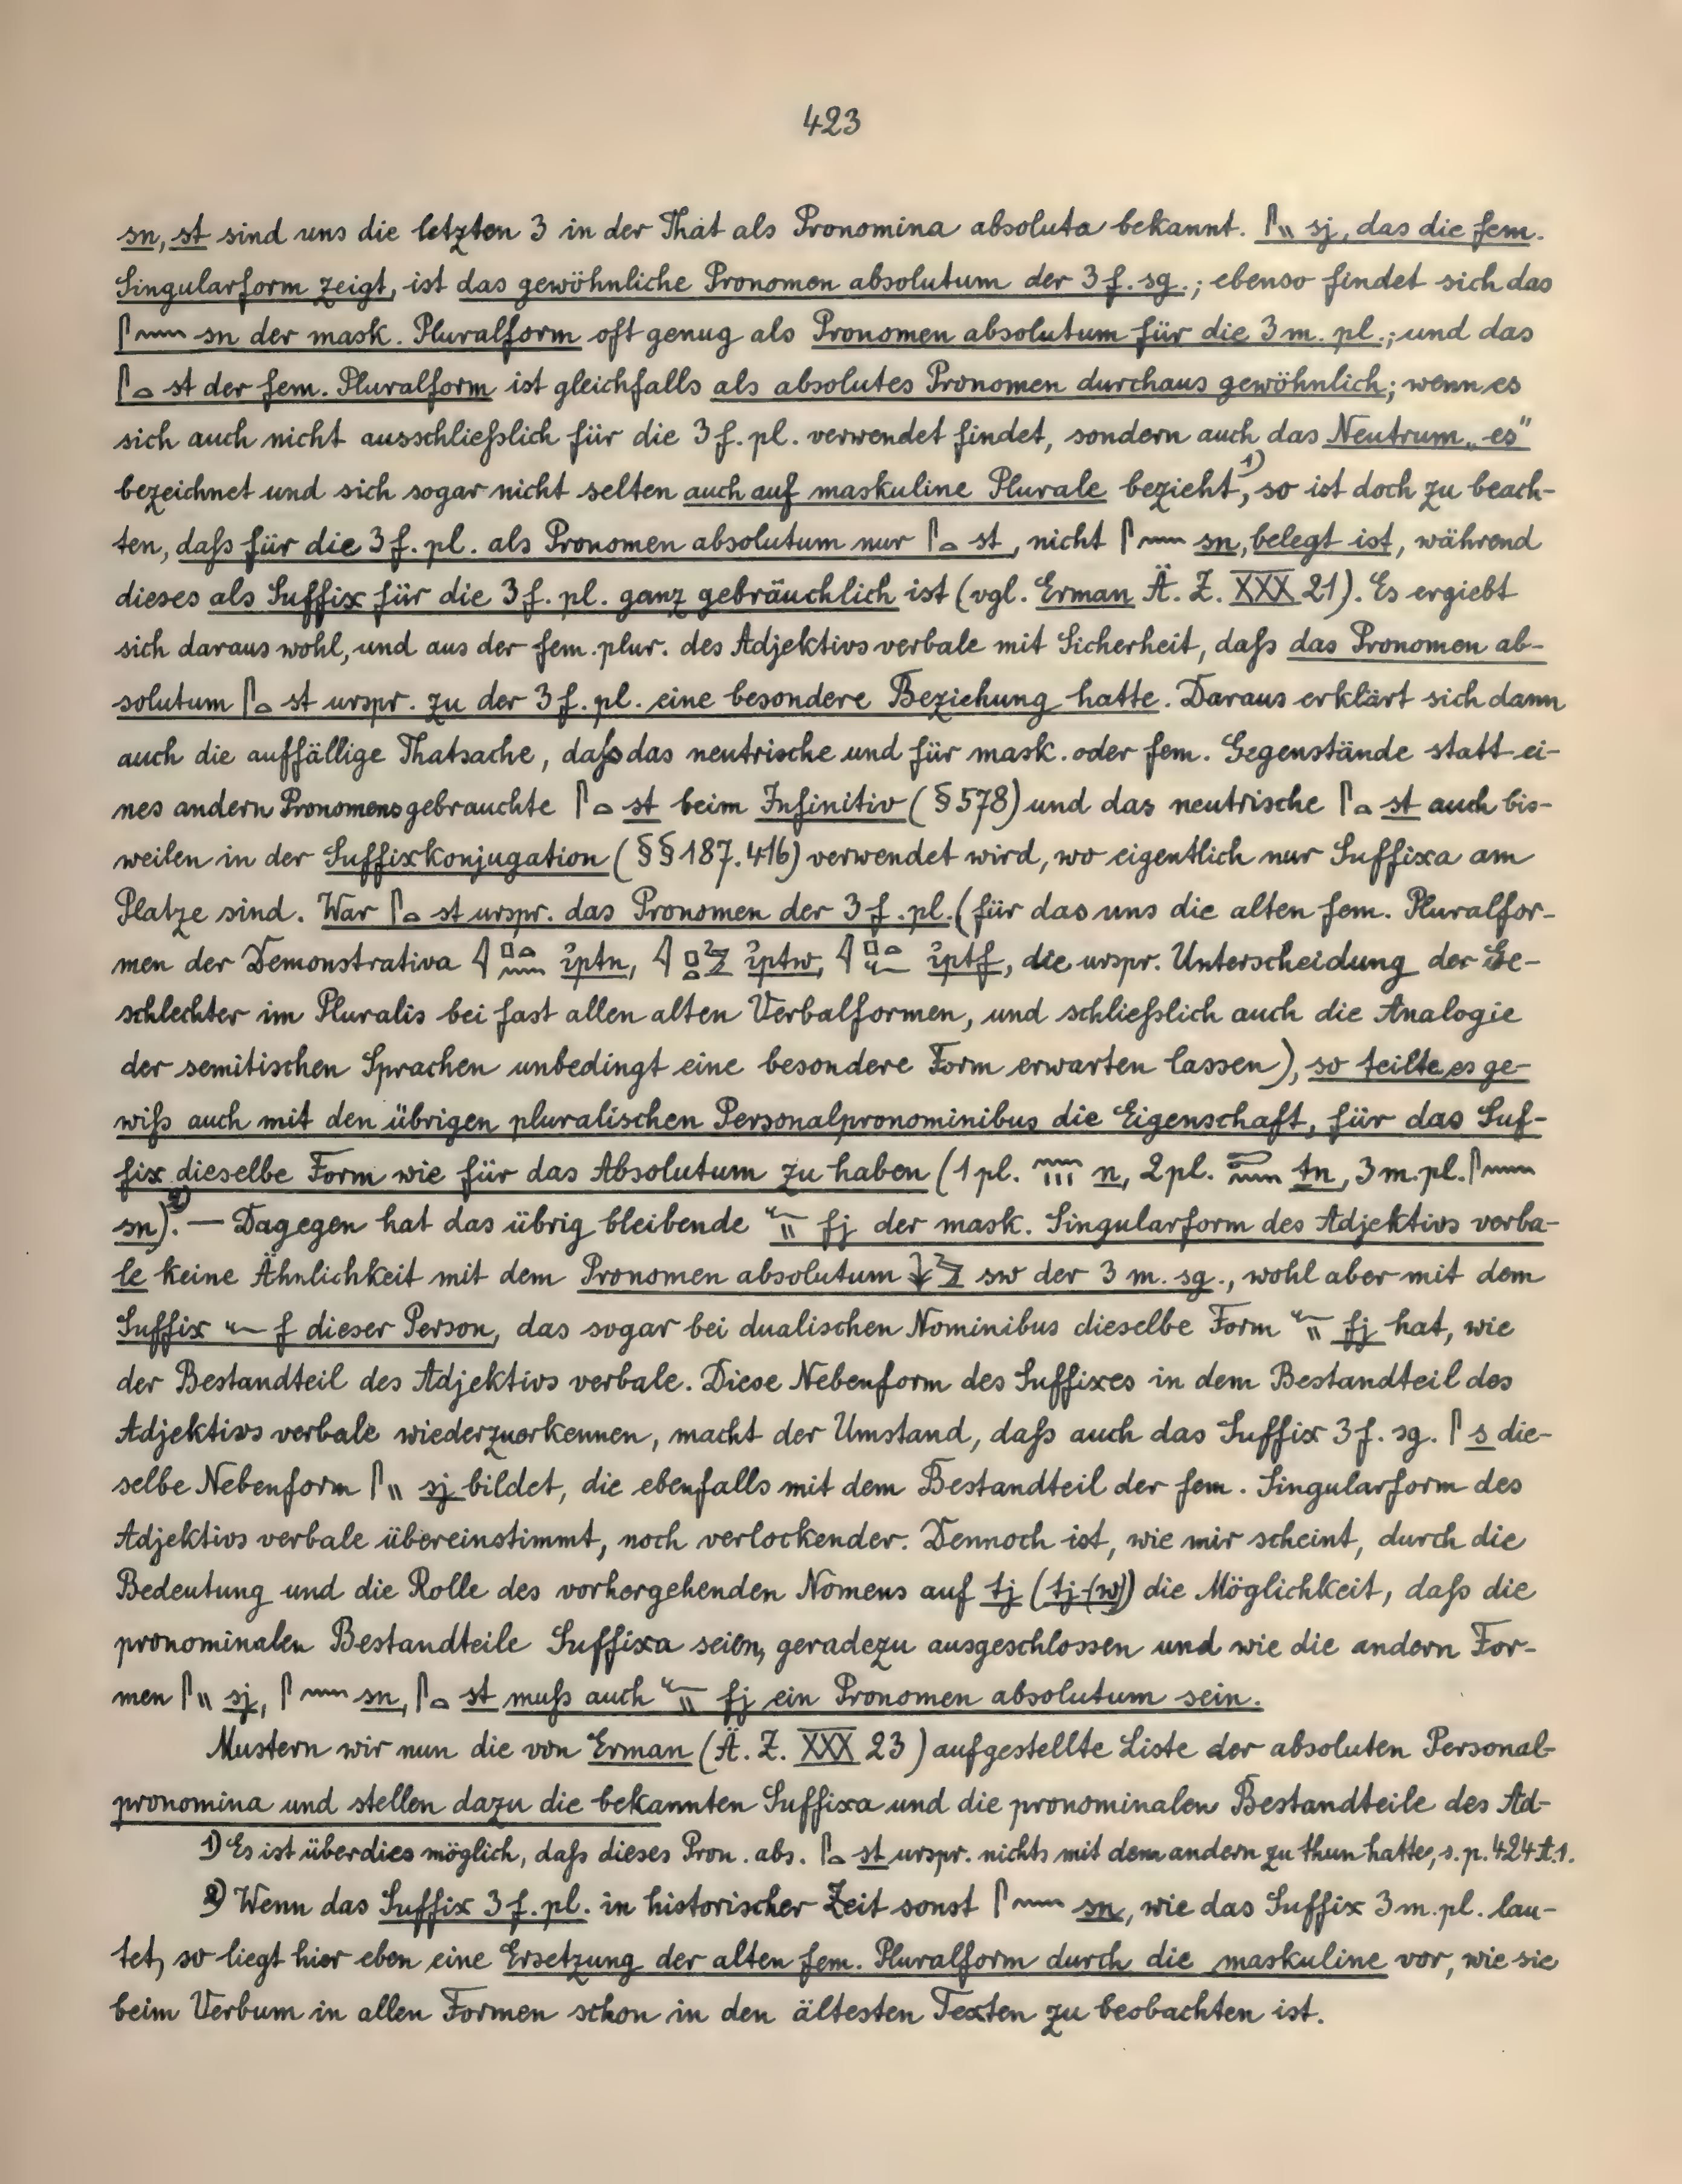 423
sn, st sind uns die letzten 3 in der That als Pronomina absoluta bekannt. 𓋴𓏭 sj, das die fem.
Singularform zeigt, ist das gewöhnliche Pronomen absolutum der 3 f. sg.; ebenso findet sich das
𓋴𓈖 sn der mask. Pluralform oft genug als Pronomen absolutum für die 3 m. pl.; und das
𓋴𓏏 st der fem. Pluralform ist gleichfalls als absolutes Pronomen durchaus gewöhnlich; wenn es
sich auch nicht ausschließlich für die 3 f. pl. verwendet findet, sondern auch das Neutrum „es"
bezeichnet und sich sogar nicht selten auch auf maskuline Plurale bezieht¹⁾, so ist doch zu beach-
ten, daß für die 3 f. pl. als Pronomen absolutum nur 𓋴𓏏 st, nicht 𓋴𓈖 sn, belegt ist, während
dieses als Suffix für die 3 f. pl. ganz gebräuchlich ist (vgl. Erman Ä. Z. XXX 21). Es ergiebt
sich daraus wohl, und aus der fem. plur. des Adjektivs verbale mit Sicherheit, daß das Pronomen ab-
solutum 𓋴𓏏 st urspr. zu der 3 f. pl. eine besondere Beziehung hatte. Daraus erklärt sich dann
auch die auffällige Thatsache, daß das neutrische und für mask. oder fem. Gegenstände statt ei-
nes andern Pronomens gebrauchte 𓋴𓏏 st beim Infinitiv (§ 578) und das neutrische 𓋴𓏏 st auch bis-
weilen in der Suffixkonjugation (§§ 187. 416) verwendet wird, wo eigentlich nur Suffixa am
Platze sind. War 𓋴𓏏 st urspr. das Pronomen der 3 f. pl. (für das uns die alten fem. Pluralfor-
men der Demonstrativa 𓇋𓊪𓏏𓈖 ꞽptn, 𓇋𓊪𓏏𓅱 ꞽptw, 𓇋𓊪𓏏𓆑 ꞽptf, die urspr. Unterscheidung der Ge-
schlechter im Pluralis bei fast allen alten Verbalformen, und schließlich auch die Analogie
der semitischen Sprachen unbedingt eine besondere Form erwarten lassen), so teilte es ge-
wiß auch mit den übrigen pluralischen Personalpronominibus die Eigenschaft, für das Suf-
fix dieselbe Form wie für das Absolutum zu haben (1 pl. 𓈖𓏥 n, 2 pl. 𓍿𓈖 ṯn, 3 m. pl. 𓋴𓈖
sn)²⁾. — Dagegen hat das übrig bleibende 𓆑𓏭 fj der mask. Singularform des Adjektivs verba-
le keine Ähnlichkeit mit dem Pronomen absolutum 𓇓𓅱 sw der 3 m. sg., wohl aber mit dem
Suffix 𓆑 f dieser Person, das sogar bei dualischen Nominibus dieselbe Form 𓆑𓏭 fj hat, wie
der Bestandteil des Adjektivs verbale. Diese Nebenform des Suffixes in dem Bestandteil des
Adjektivs verbale wiederzuerkennen, macht der Umstand, daß auch das Suffix 3 f. sg. 𓋴 s die-
selbe Nebenform 𓋴𓏭 sj bildet, die ebenfalls mit dem Bestandteil der fem. Singularform des
Adjektivs verbale übereinstimmt, noch verlockender. Dennoch ist, wie mir scheint, durch die
Bedeutung und die Rolle des vorhergehenden Nomens auf tj (tj-(w)) die Möglichkeit, daß die
pronominalen Bestandteile Suffixa seien, geradezu ausgeschlossen und wie die andern For-
men 𓋴𓏭 sj, 𓋴𓈖 sn, 𓋴𓏏 st muß auch 𓆑𓏭 fj ein Pronomen absolutum sein.
Mustern wir nun die von Erman (Ä. Z. XXX 23) aufgestellte Liste der absoluten Personal-
pronomina und stellen dazu die bekannten Suffixa und die pronominalen Bestandteile des Ad-
1) Es ist überdies möglich, daß dieses Pron. abs. 𓋴𓏏 st urspr. nichts mit dem andern zu thun hatte, s. p. 424 A. 1.
2) Wenn das Suffix 3 f. pl. in historischer Zeit sonst 𓋴𓈖 sn, wie das Suffix 3 m. pl. lau-
tet, so liegt hier eben eine Ersetzung der alten fem. Pluralform durch die maskuline vor, wie sie
beim Verbum in allen Formen schon in den ältesten Texten zu beobachten ist.